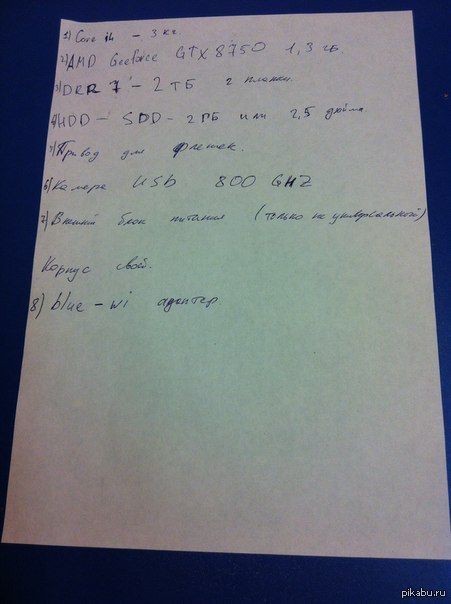 1) Core i4 - 3 кг.
2) AMD Geeforce GTX 8750 1,3 гб.
3) DRR 7 - 2 ТБ 2 планки.
4) HDD - SDD - 2 ГБ или 2,5 дюйма
5) Привод для флешек.
6) Камера USb 800 GHZ
7) Внешний блок питания (только не универсальный)
Корпус свой.
8) blue-wi адаптер.
pikabu.ru